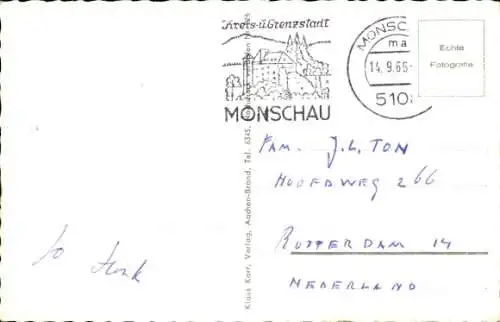 Kreis-u. Grenzstadt
MONSCHAU
MONSC
ma
14.9.66-
510
Echte
Fotografie
Klaus Karr, Verlag, Aachen-Brand, Tel. 6343,
FAM. J.L. TON
HOOFDWEG 266
ROTTERDAM 14
NEDERLAND
Henk